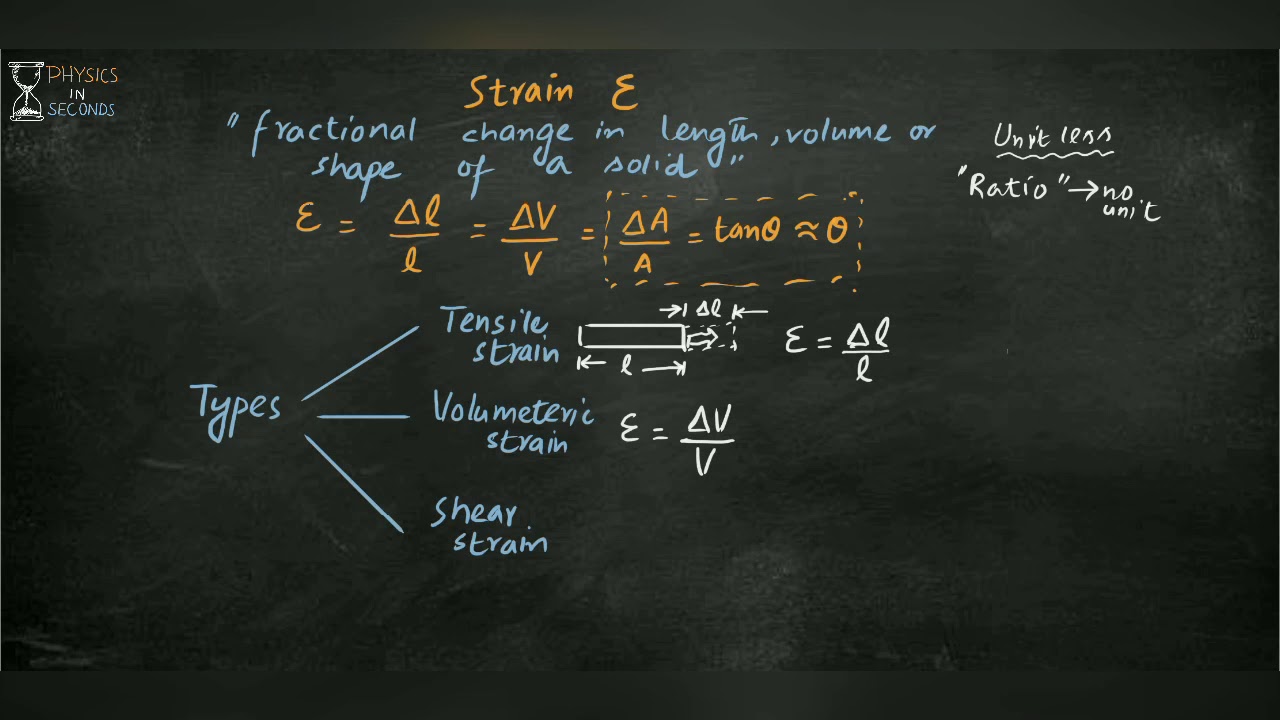 PHYSICS
IN
SECONDS
Strain ε
"fractional change in length, volume or
shape of a solid"
Unit less
"Ratio" → no
unit
ε = Δl/l = ΔV/V = ΔA/A = tanθ ≈ θ
Types
Tensile
strain
Δl
l
ε = Δl/l
Volumeteric
strain
ε = ΔV/V
Shear
strain